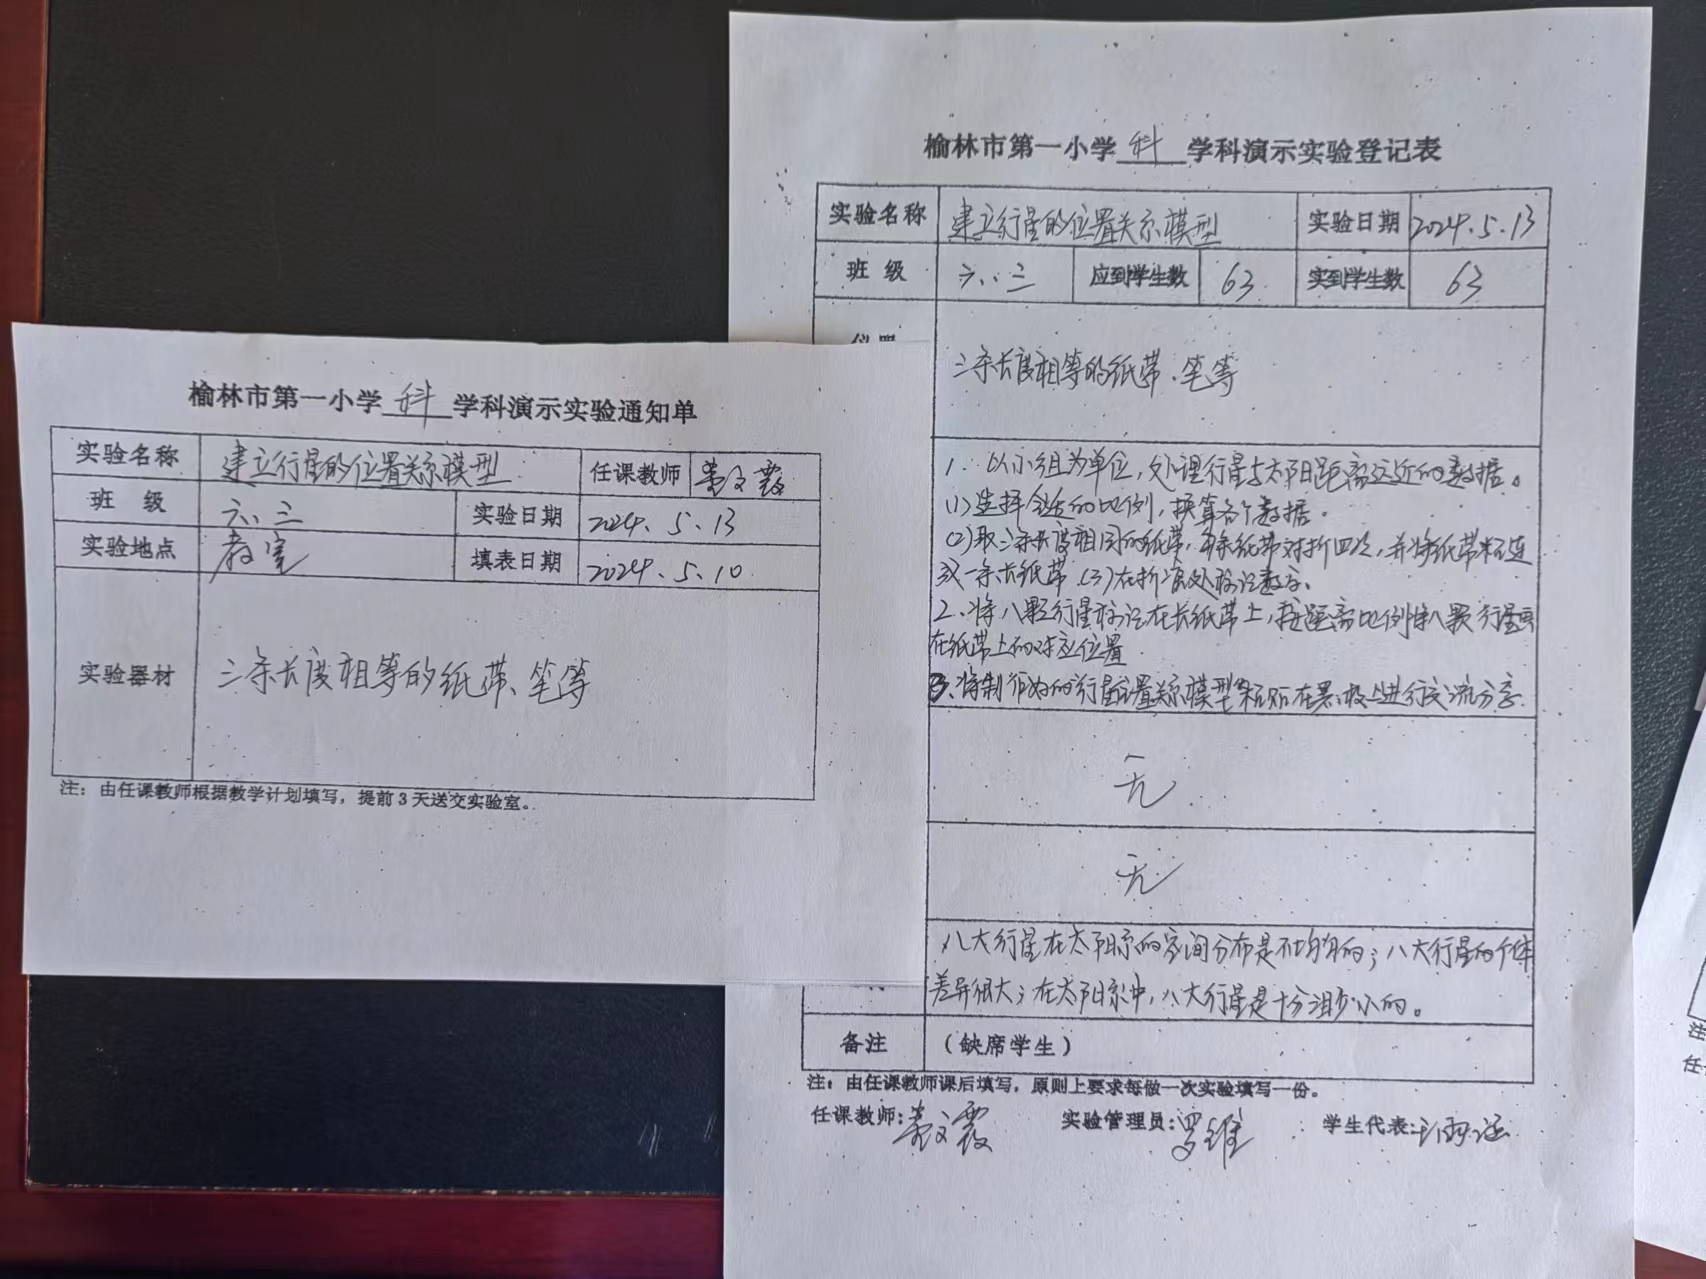 榆林市第一小学 科 学科演示实验通知单
实验名称 建立行星的位置关系模型 任课教师 文霞
班 级 六、三 实验日期 2024.5.13
实验地点 教室 填表日期 2024.5.10
实验器材 三条长度相等的纸带、笔等
注：由任课教师根据教学计划填写，提前3天送交实验室。
榆林市第一小学 科 学科演示实验登记表
实验名称 建立行星的位置关系模型 实验日期 2024.5.13
班 级 六、三 应到学生数 63 实到学生数 63
三条长度相等的纸带、笔等
1. 以小组为单位，处理行星与太阳距离远近的数据。
(1)选择合适的比例，换算各个数据。
(2)取三条长度相同的纸带，每条纸带对折四次，并将纸带粘连
成一条长纸带 (3)在折痕处标记数字。
2.将八颗行星标记在长纸带上，按距离比例将八颗行星画
在纸带上的对应位置
3.将制作好的行星位置关系模型粘贴在黑板上进行交流分享.
无
无
八大行星在太阳系的空间分布是不均匀的；八大行星的个体
差异很大；在太阳系中，八大行星是十分渺小的。
备注 （缺席学生）
注：由任课教师课后填写，原则上要求每做一次实验填写一份。
任课教师: 文霞 实验管理员: 罗维 学生代表:
注
任